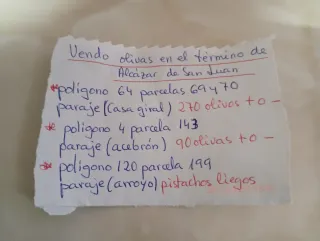 Vendo olivas en el término de
Alcázar de San Juan
*polígono 64 parcelas 69 y 70
paraje (Casa giral) 270 olivos + o -
* polígono 4 parcela 143
paraje (acebrón) 90 olivas + o -
* polígono 120 parcela 199
paraje (arroyo) pistachos liegos